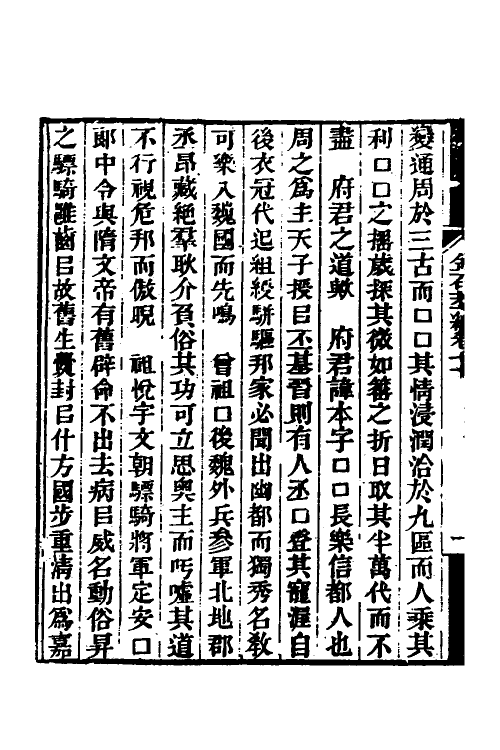 變通周於三古而囗囗其情浸潤洽於九區而人乘其
利囗囗之搖蕆探其微如箬之折日取其半萬代而不
盡　府君之道歟　府君諱本字囗囗長樂信都人也
周之爲主天子授㠯丕基晉則有人丞囗登其寵渥自
後衣冠代起組綬騈驅邦家必聞出幽都而獨秀名敎
可樂入魏國而先鳴　曾祖囗後魏外兵參軍北地郡
丞昂藏絶羣耿介負俗其功可立思奧主而吁嘘其道
不行視危邦而傲睨　祖悅宇文朝驃騎將軍定安囗
郎中令與隋文帝有舊辟命不出去病㠯威名動俗昇
之驃騎雝齒㠯故舊生亹封㠯什方國步重淸出爲嘉